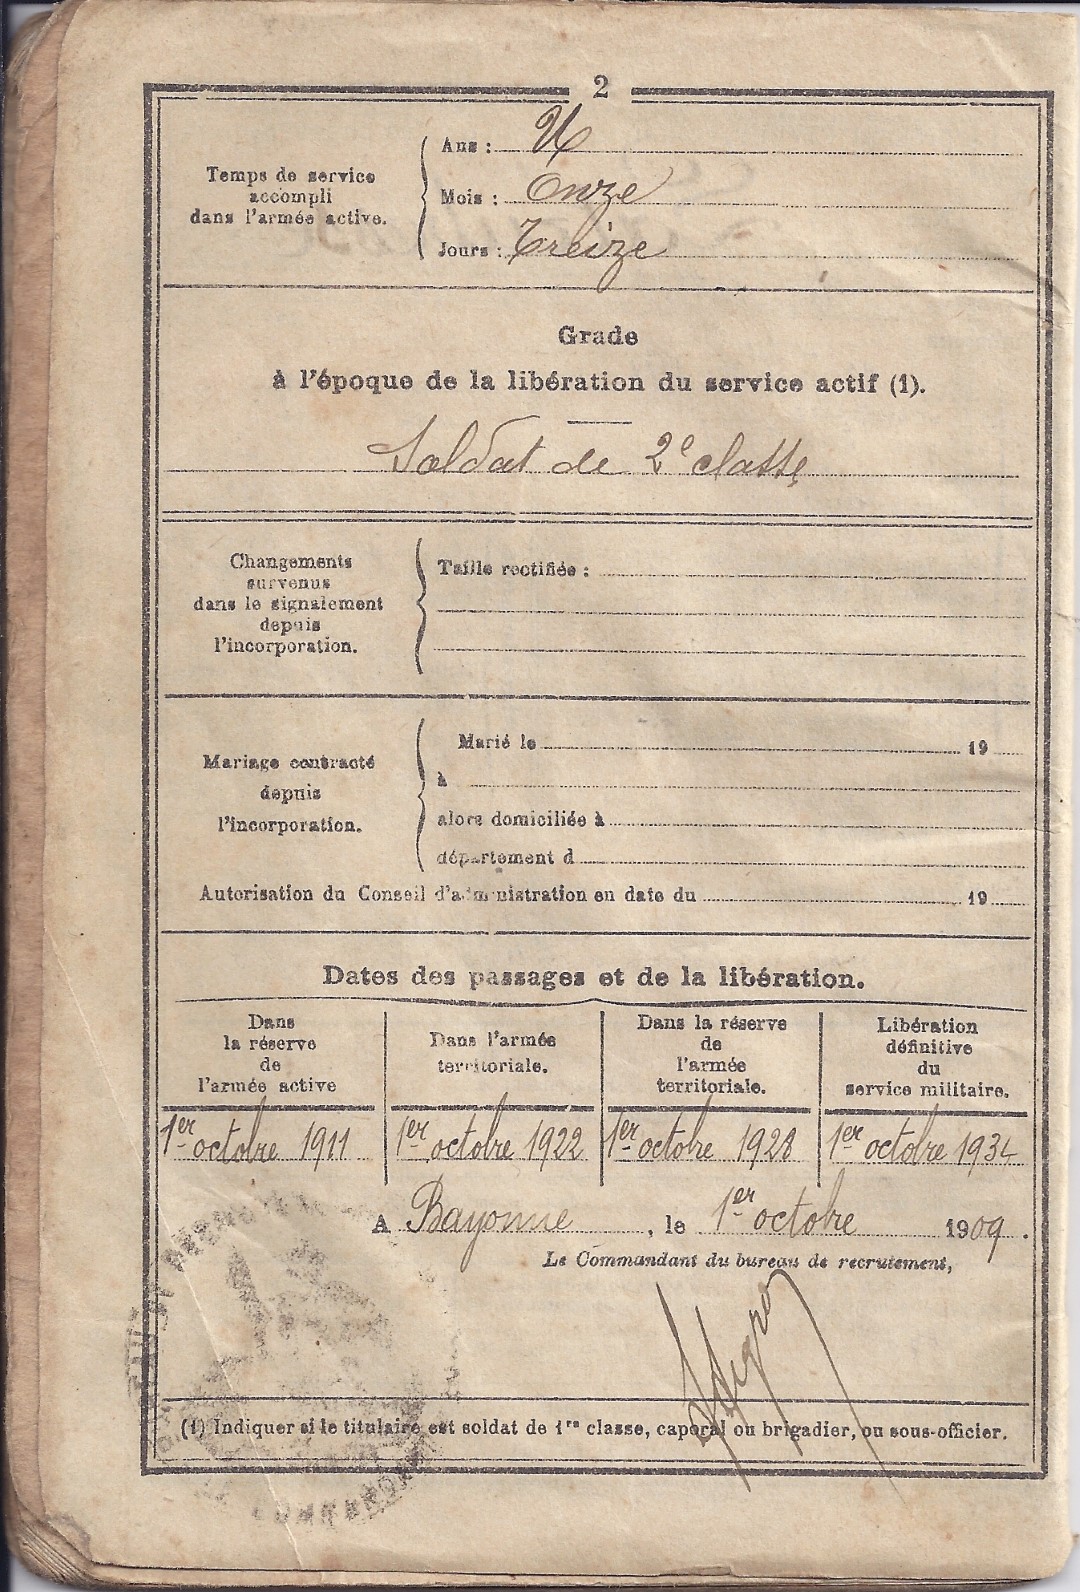 2
Temps de service
accompli
dans l'armée active.
Ans :
Mois : Onze
Jours : Treize
Grade
à l'époque de la libération du service actif (1).
Soldat de 2e classe
Changements
survenus
dans le signalement
depuis
l'incorporation.
Taille rectifiée :
Mariage contracté
depuis
l'incorporation.
Marié le 19
à
alors domiciliée à
département d
Autorisation du Conseil d'administration en date du 19
Dates des passages et de la libération.
Dans
la réserve
de
l'armée active
1er octobre 1911
Dans l'armée
territoriale.
1er octobre 1922
Dans la réserve
de
l'armée
territoriale.
1er octobre 1928
Libération
définitive
du
service militaire.
1er octobre 1934
A Bayonne, le 1er octobre 1909.
Le Commandant du bureau de recrutement,
(1) Indiquer si le titulaire est soldat de 1re classe, caporal ou brigadier, ou sous-officier.